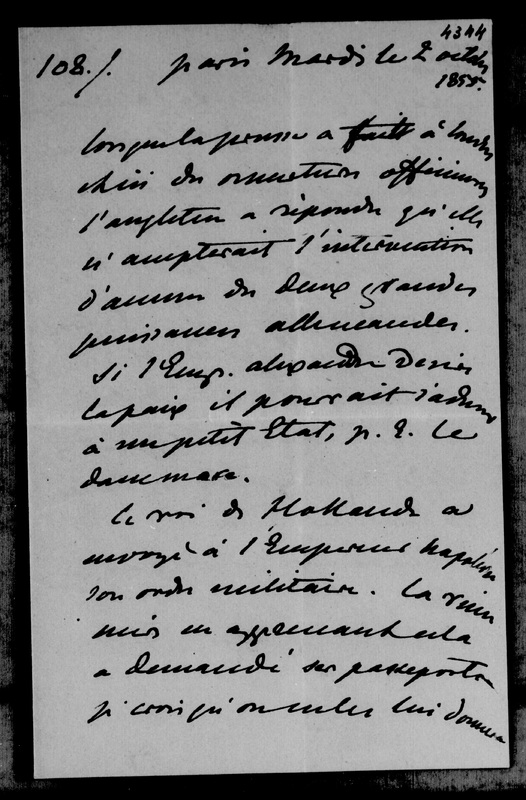 4344
108./. Paris Mardi le 2 octobre
1855.
lorsque la prusse a fait à Londres
des ouvertures officieuses
l'angleterre a répondu qu'elle
n'accepterait l'intervention
d'aucune des deux grandes
puissances allemandes.
Si l'Emp. alexandre désire
la paix il pourrait s'adresser
à un petit Etat, p. E. le
danemarc.
le roi de Hollande a
envoyé à l'Empereur Napoléon
son ordre militaire. La reine
mère en apprenant cela
a demandé ses passeports
je crois qu'on lui donnera